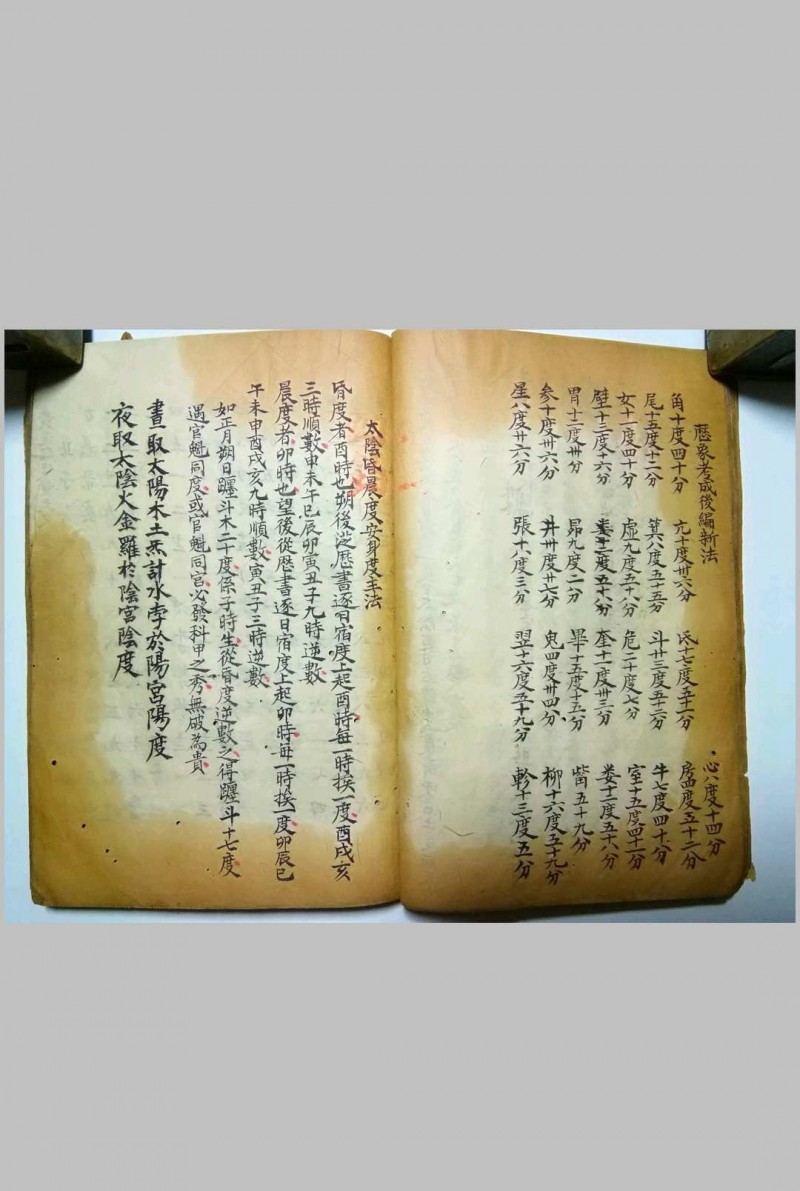 歷象考成後編新法
角十度四十分 亢十度卅六分 氐十七度五十一分 心八度十四分
尾十五度十二分 箕八度五十五分 斗廿三度五十二分 房四度五十二分
女十一度四十分 虛九度五十八分 危二十度七分 牛七度四十分
壁十三度十六分 婁十二度五十八分 奎十一度卅三分 室十五度四十一分
胃十二度卅分 昴九度二分 畢十五度十五分 娄十二度五十八分
參十度卅六分 井卅度廿七分 鬼四度卅四分 觜五十九分
星八度廿六分 張十八度三分 翌十六度五十九分 柳十六度五十九分
軫十三度五分
太陰昏晨度安身度主法
昏度者酉時也朔後從歷書逐日宿度上起酉時每一時挨一度酉戌亥
三時順數申未午巳辰卯寅丑子九時逆數
晨度者卯時也望後從歷書逐日宿度上起卯時每一時挨一度卯辰巳
午未申酉戌亥九時順數寅丑子三時逆數
如正月朔日躔斗木二十度係子時生從昏度逆數之得躔斗十七度
遇官魁同度或官魁同宮必發科甲之秀無破為貴
晝取太陽木土炁計水孛於陽宮陽度
夜取太陰火金羅於陰宮陰度